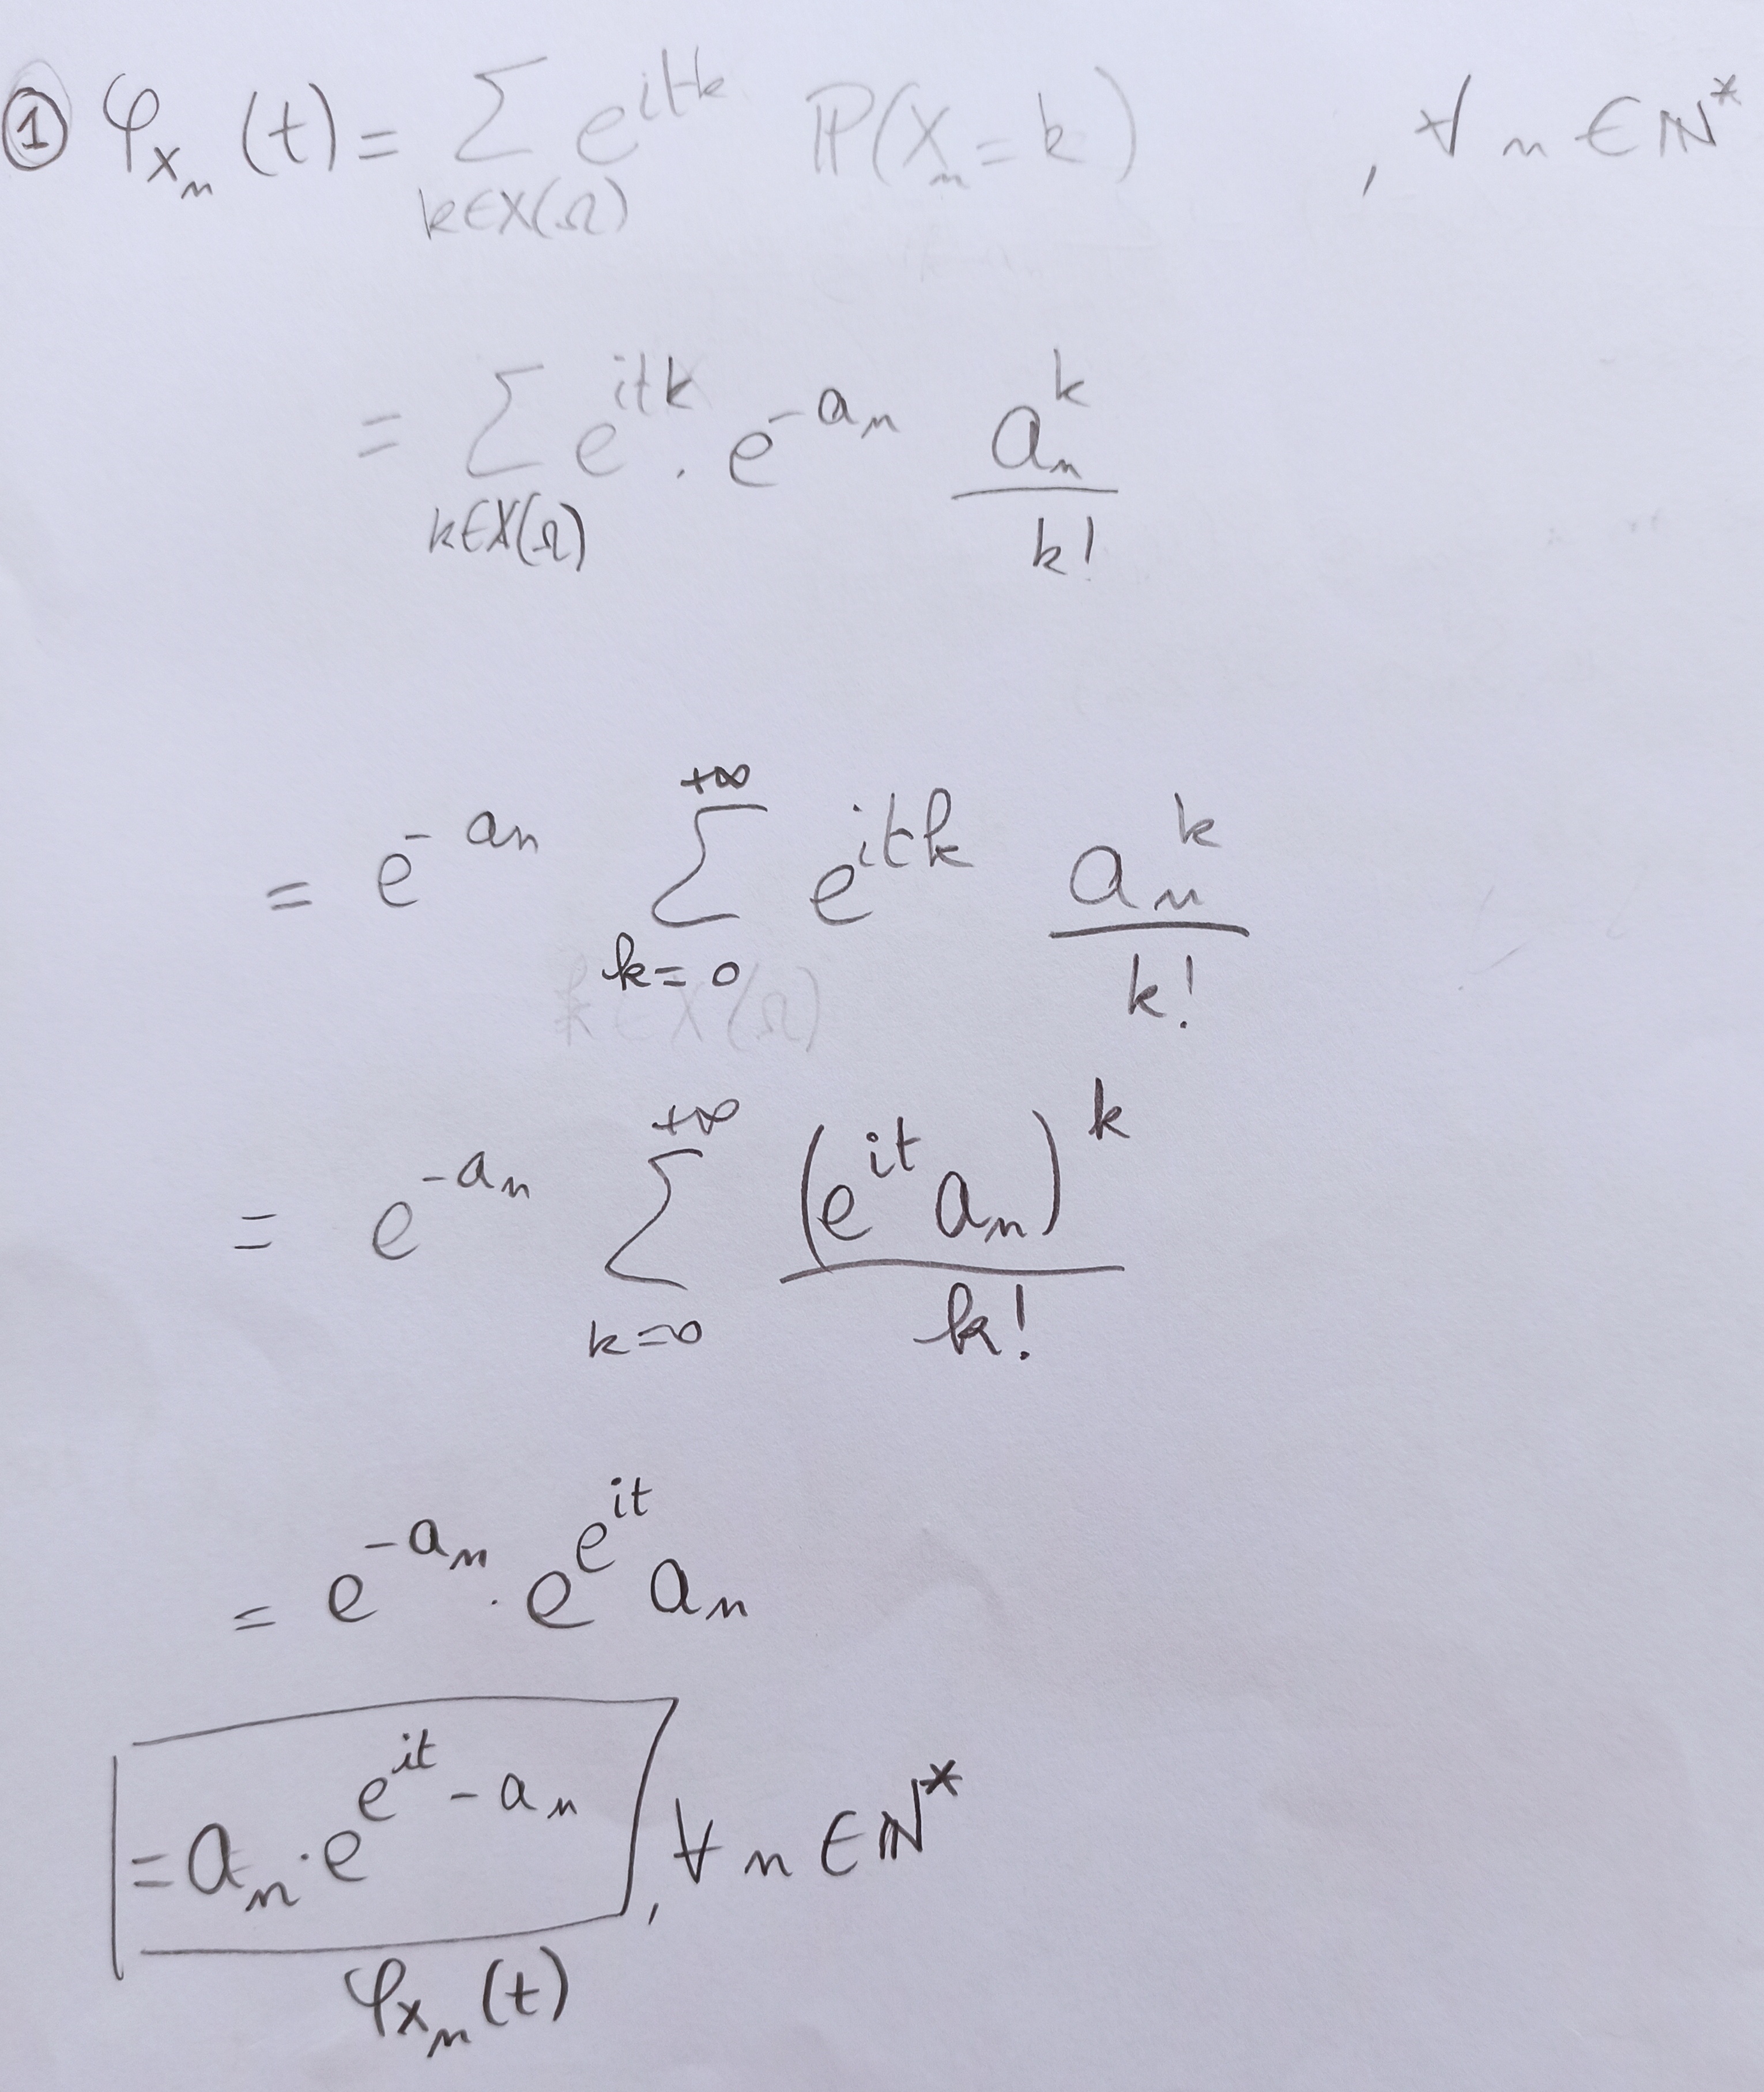 ① φ_{X_n}(t) = ∑_{k∈X(Ω)} e^{itk} ℙ(X_n = k) , ∀ n ∈ ℕ*
= ∑_{k∈X(Ω)} e^{itk} . e^{-a_n} a_n^k / k!
= e^{-a_n} ∑_{k=0}^{+∞} e^{itk} a_n^k / k!
k∈X(Ω)
= e^{-a_n} ∑_{k=0}^{+∞} (e^{it} a_n)^k / k!
= e^{-a_n} . e^{e^{it}} a_n
= a_n . e^{e^{it} - a_n} , ∀ n ∈ ℕ*
φ_{X_n}(t)